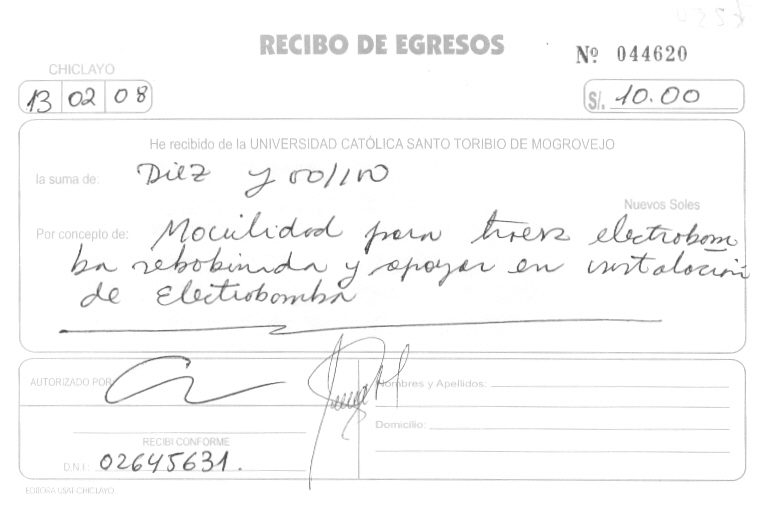 RECIBO DE EGRESOS
Nº 044620
CHICLAYO
13 02 08
S/. 10.00
He recibido de la UNIVERSIDAD CATÓLICA SANTO TORIBIO DE MOGROVEJO
la suma de: Diez y 00/100
Nuevos Soles
Por concepto de: Movilidad para traer electrobom
ba rebobinada y apoyar en instalación
de Electrobomba
AUTORIZADO POR
Nombres y Apellidos:
Domicilio:
RECIBI CONFORME
D.N.I.: 02645631.
EDITORA USAT CHICLAYO